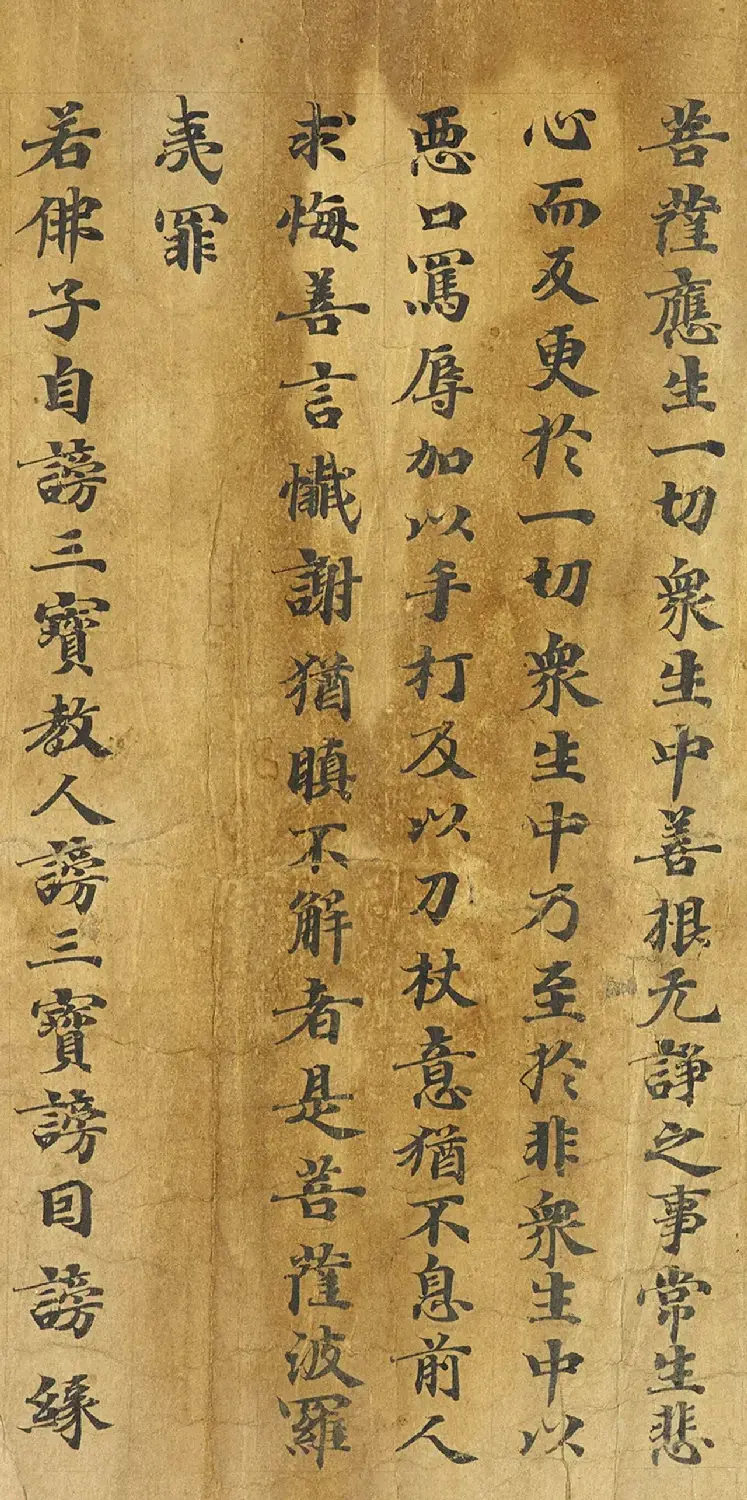 菩薩應生一切衆生中善根无諍之事常生悲
心而反更於一切衆生中乃至於非衆生中以
惡口罵辱加以手打及以刀杖意猶不息前人
求悔善言懺謝猶瞋不解者是菩薩波羅
夷罪
若佛子自謗三寶教人謗三寶謗因謗緣